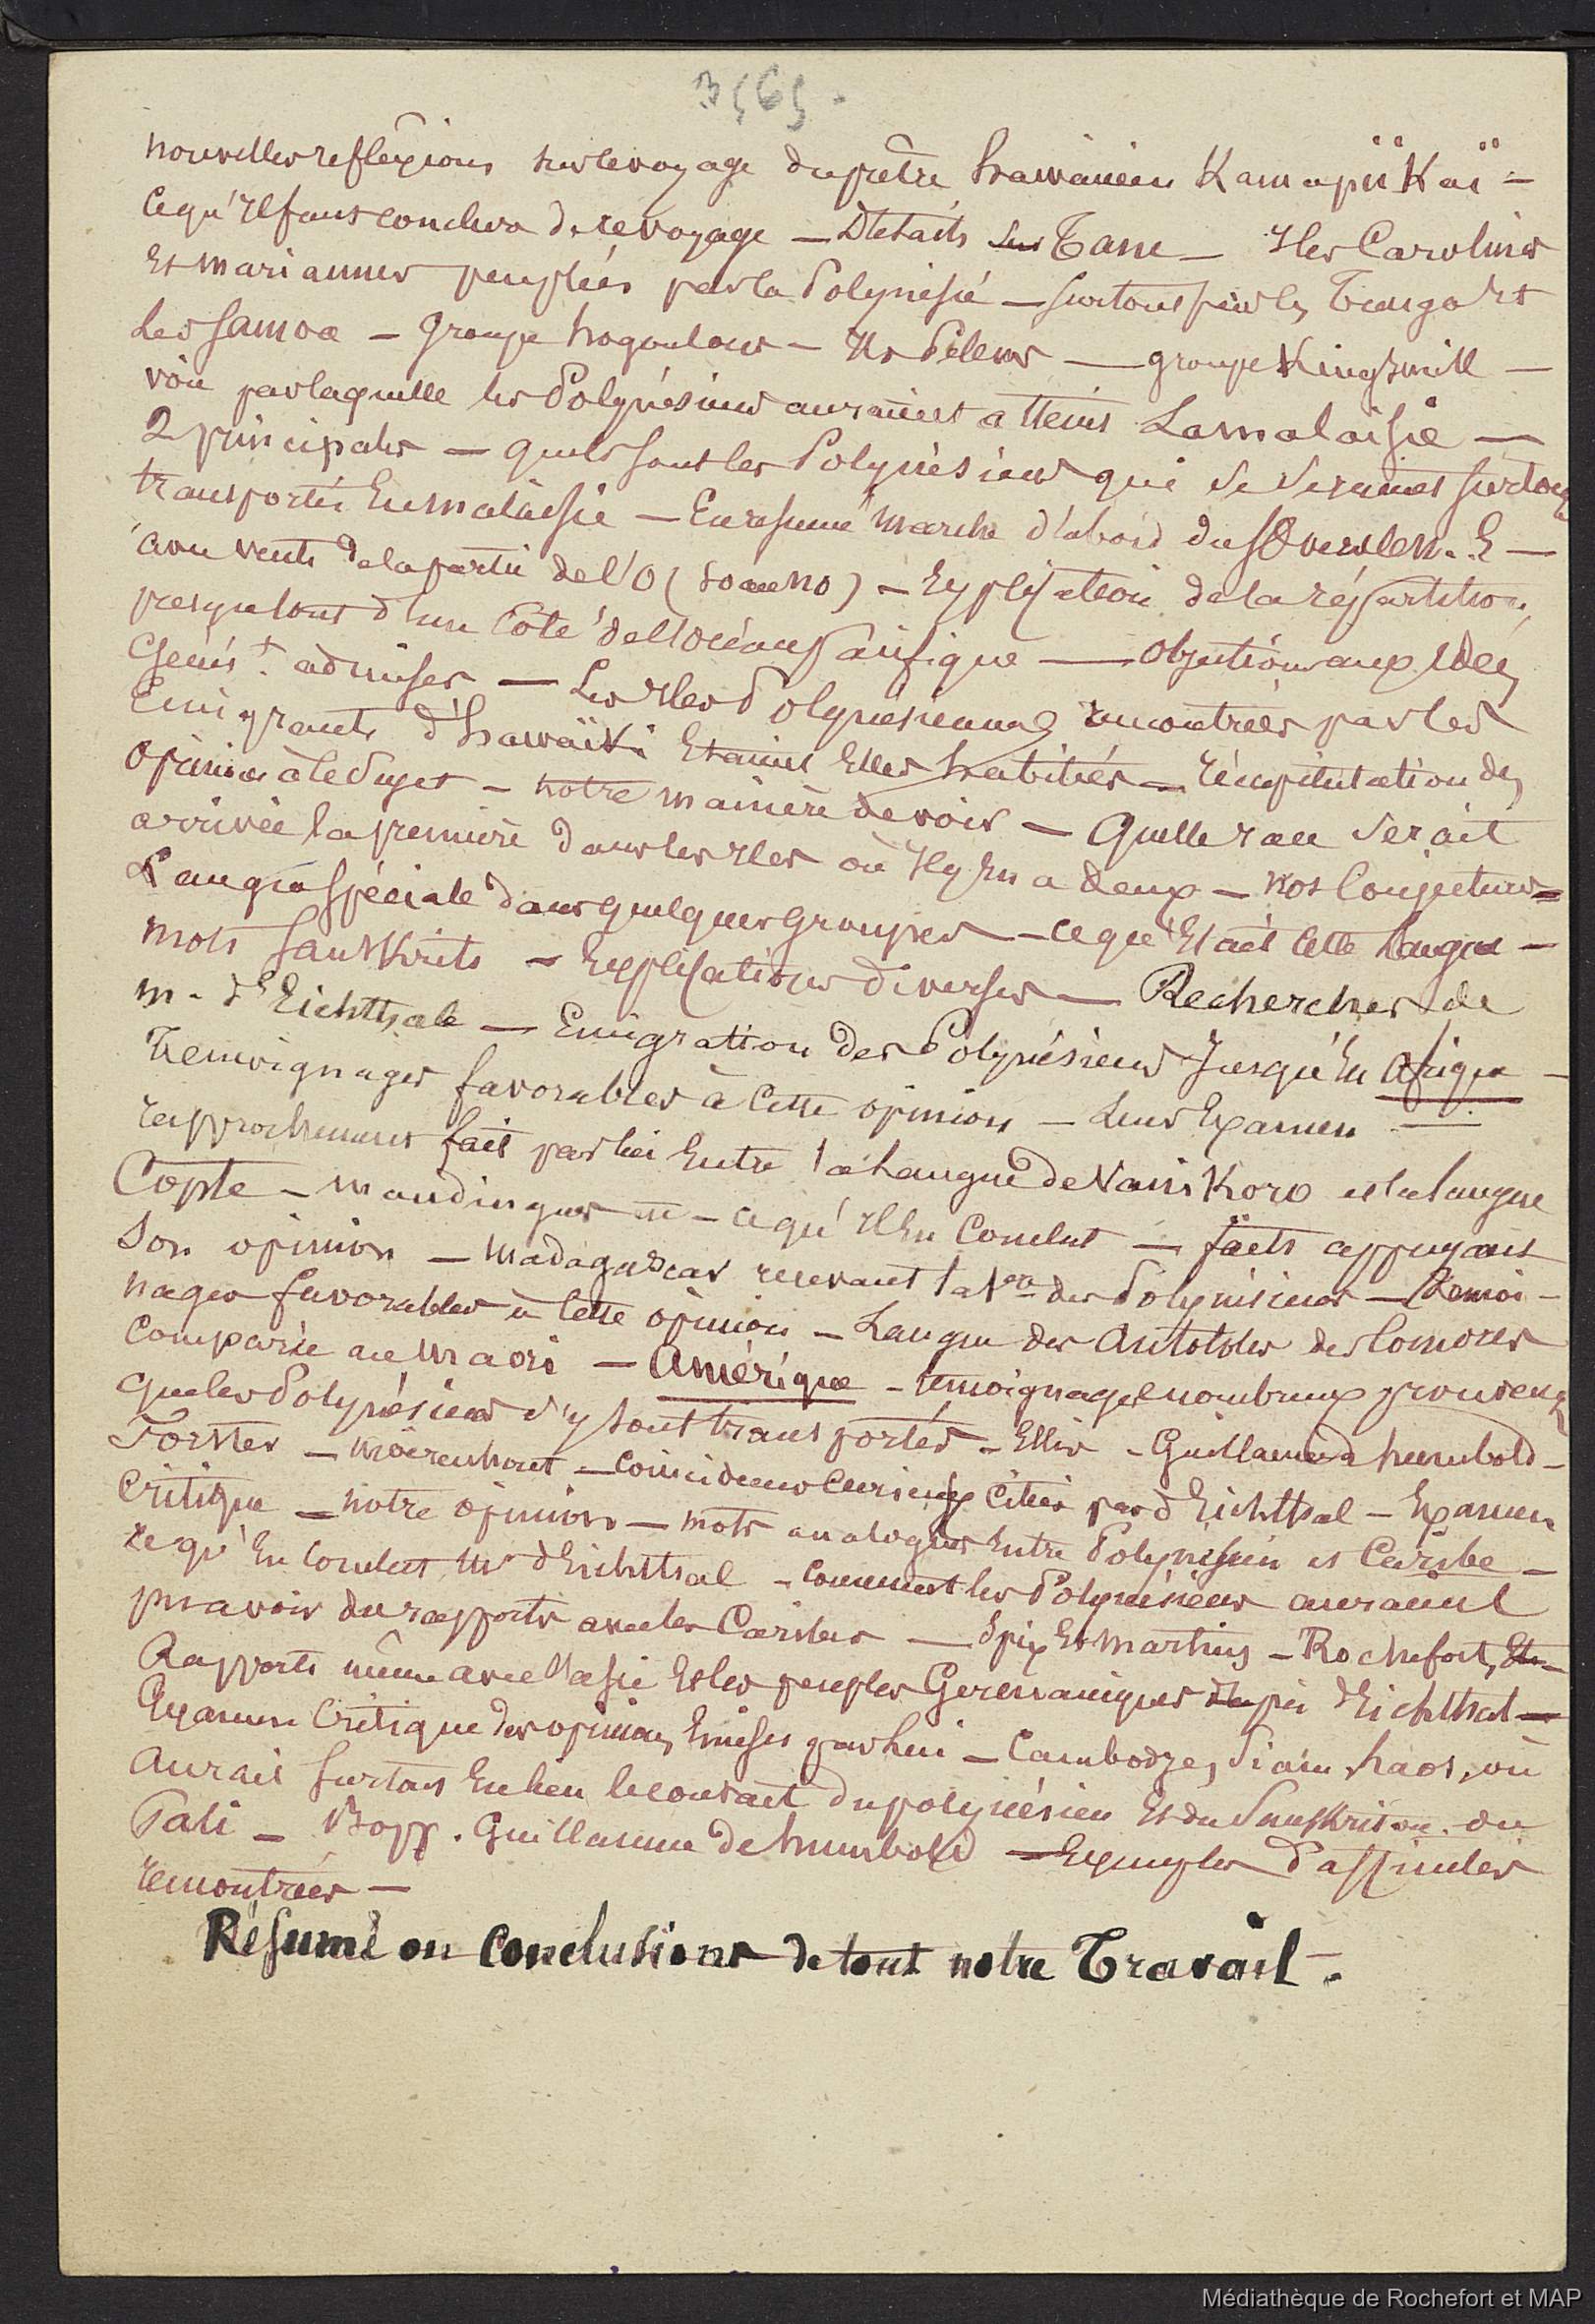 3565.
nouvelles reflexions sur le voyage du prêtre hawaiien Kamapïï Kaï –
Ce qu'Il faut conclure de ce voyage – Détails sur Tane – Iles Carolines
Et mariannes peuplées par la Polynésie – surtout par les Tunga Et
Les Samoa – Groupe hogouloux – Iles Pelew – groupe Kingsmill –
voie par laquelle les Polynésiens auraient atteint La malaisie –
2 principales – quels sont les Polynésiens qui se seraient surtout
transportés En malaisie – En resumé marche d'abord du SO vers le N. E –
avec vents de la partie de l'O (so au no) – Explication de la répartition
presque tous d'un Côté de l'océan Pacifique – Objections aux Idées
Génér.t admises – Les Iles Polynésiennes rencontrées par les
Emigrants d'hawaïki Etaient Elles habitées – récapitulation des
opinions à ce sujet – notre manière de voir – Quelle race serait
arrivée la première dans les Iles où Il y En a deux – nos Conjectures –
Langue spéciale dans quelques groupes – ce que Etait Cette langue –
mots Sanskrits – Explications diverses – Recherches de
m. d'Eichthal – Emigration des Polynésiens Jusqu'En afrique –
Temoignages favorables à Cette opinion – Leur Examen –
rapprochement fait par lui Entre la langue de Vanikoro et la langue
Copte – mandingue – ce qu'Il En Conclut – faits appuyant
Son opinion – Madagascar recevant la des Polynésiens – Temoi-
nages favorables à cette opinion – Langue des Antolotes des Comores
Comparée au Maori – Amérique – temoignages nombreux prouvent
que les Polynésiens s'y sont transportés – Ellis – Guillaume d humbold –
Forster – Moërenhout – Coincidences Curieuses Citées par d'Eichthal – Examen
Critique – notre opinion – mots analogues Entre Polynésien et Caribe –
ce qu'En Conclut Mr d'Eichthal – Comment les Polynésiens auraient
pu avoir des rapports avec les Caribes – Spix Et Martius – Rochefort, Etc –
Rapports même avec l'asie Et les peuples Germaniques d'Eichthal –
Examen Critique des opinions Emises par lui – Cambodge, Siam, Laos, où
Aurait surtout Eu lieu le contact du polynésien Et du Sanskrit ou du
Pali – Bopp. Guillaume de humbold – Exemples d'affinités
remontrées –
Résumé ou Conclusions de tout notre Travail –.
Médiathèque de Rochefort et MAP